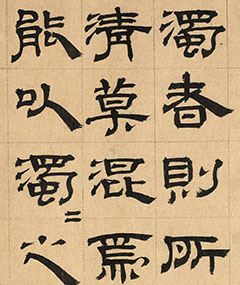 濁者則所
清莫混焉
能以濁=之